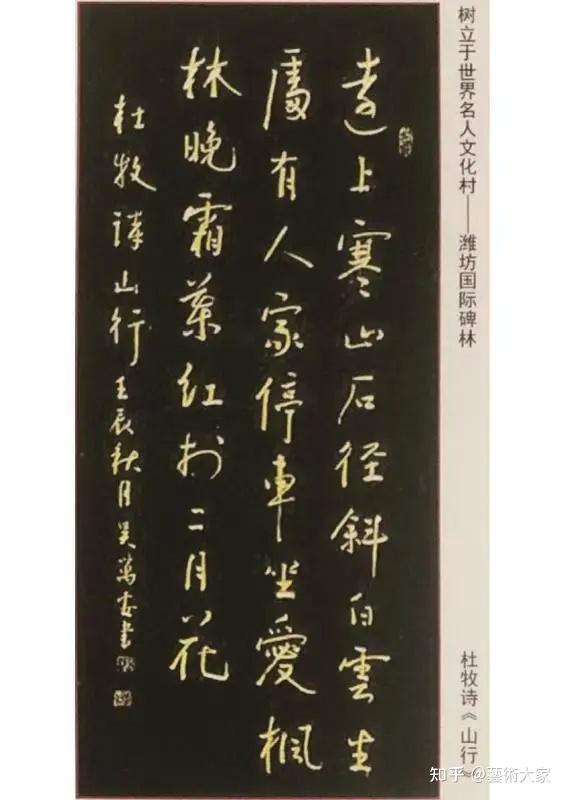 树立于世界名人文化村——潍坊国际碑林
杜牧诗《山行》
遠上寒山石径斜白雲生
處有人家停車坐愛楓
林晚霜葉红於二月花
杜牧诗山行壬辰秋月吴萬書
知乎 @藝術大家